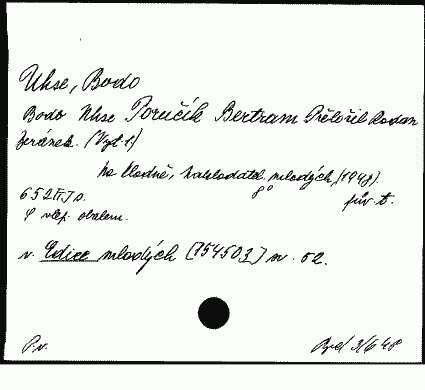 Uhse, Bodo
Bodo Uhse Poručík Bertram Přeložil Rudan
Beránek. (Vyd. 1)
Na Kladně, Nakladatel. mladých, (1948).
8° pův. t.
652 [I] s.
S obálem.
v. Edice mladých (754503) sv. 52.
P. v.
3/6 48